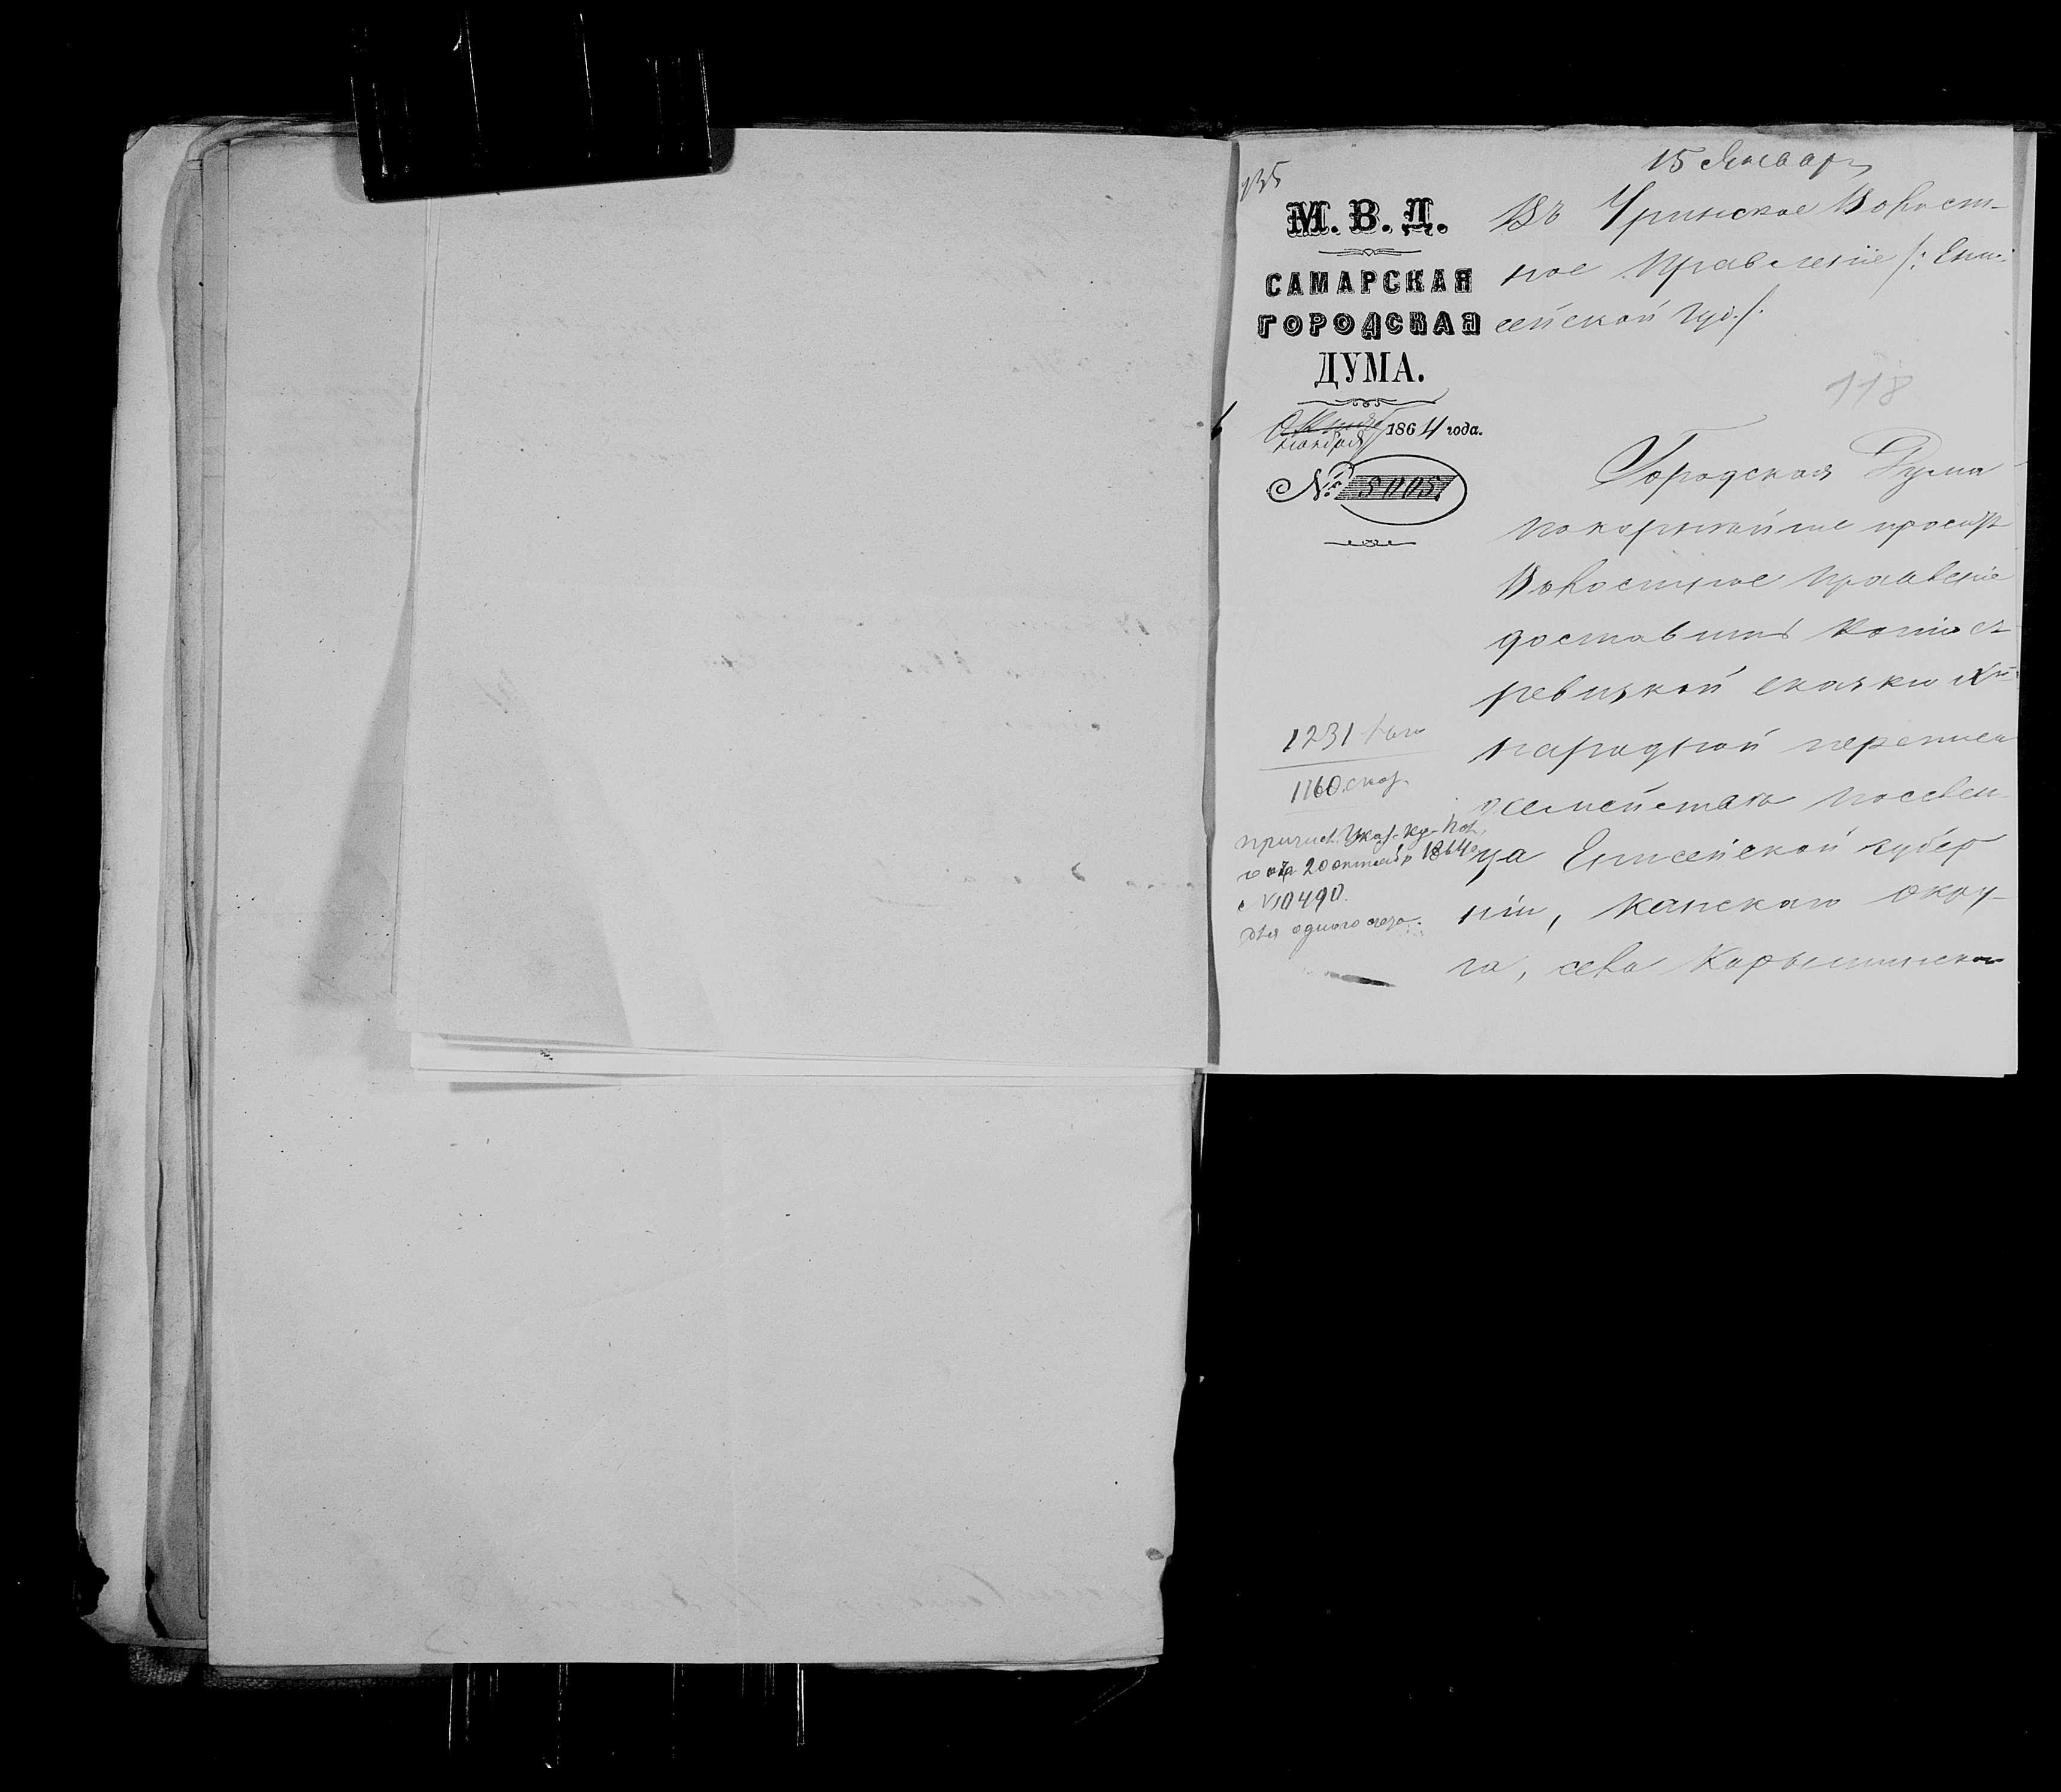 15 Января
М. В. Д.
САМАРСКАЯ
ГОРОДСКАЯ
ДУМА.
Октября 1864 года.
Ноября
№ 5005
Въ Уринское Волост-
ное Правленіе /: Ени-
сейской Губ. /.
118
Городская Дума
покорнѣйше проситъ
Волостное Правленіе
доставить копію съ
ревизкой сказки Хй
народной переписи
о семействѣ поселен
ца Енисейской губер
ніи, Канскаго окру-
га, села
1231
1160
причисл. Указ. Каз. Пал.
отъ 20 октября 1864
№ 10490.
для одного